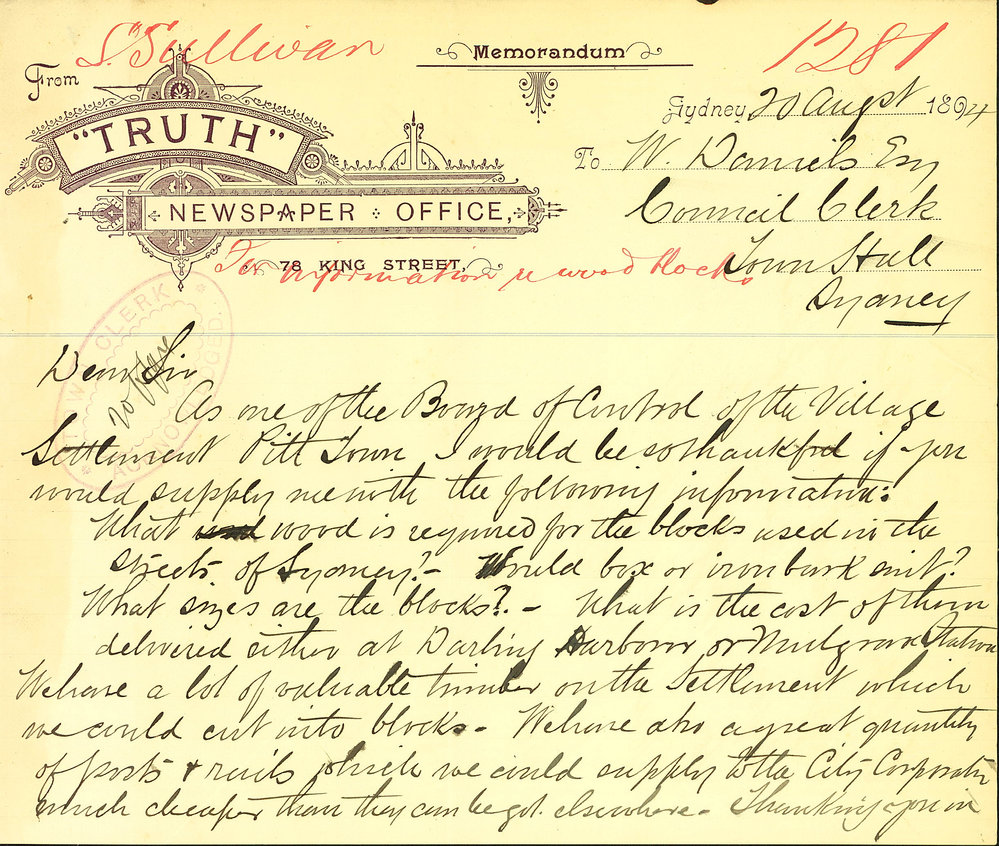 S. Sullivan
1281
Memorandum
From
"TRUTH"
NEWSPAPER OFFICE,
78 KING STREET,
Sydney 20 Augst 1894
To W. Daniels Esq
Council Clerk
Town Hall
Sydney
For information re wood blocks
TOWN CLERK
ACKNOWLEDGED.
20 Augt
Dear Sir
As one of the Board of Control of the Village
Settlement Pitt Town I would be so thankful if you
would supply me with the following information:
What wood is required for the blocks used in the
streets of Sydney? - Would box or ironbark suit?
What sizes are the blocks? - What is the cost of them
delivered either at Darling Harbour or Mulgrave Station
We have a lot of valuable timber on the Settlement which
we could cut into blocks - We have also a great quantity
of posts & rails which we could supply to the City Corporatn
much cheaper than they can be got elsewhere - Thanking you in